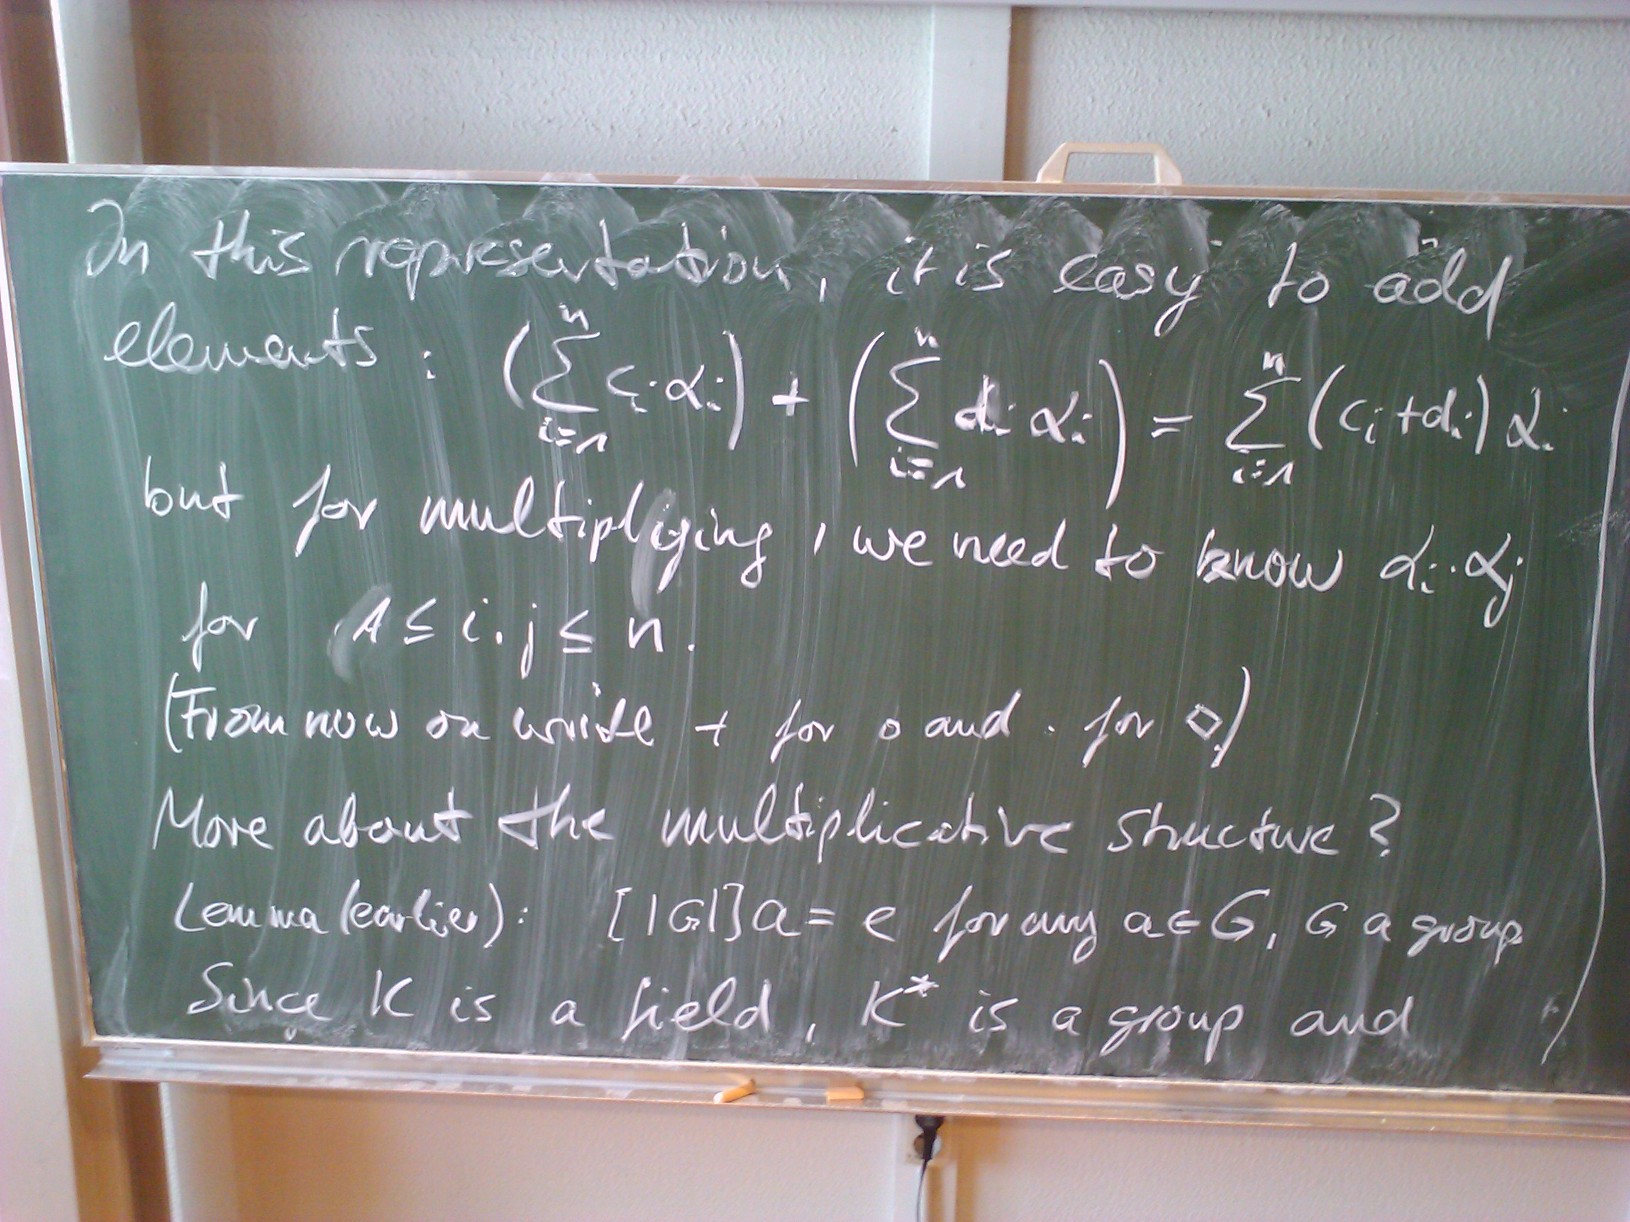 In this representation, it is easy to add
elements : (∑_{i=1}^{n} c_i α_i) + (∑_{i=1}^{n} d_i α_i) = ∑_{i=1}^{n} (c_i + d_i) α_i
but for multipliying, we need to know α_i · α_j
for 1 ≤ i, j ≤ n.
(From now on write + for ∘ and · for ◇.)
More about the multiplicative structure?
Lemma (earlier): [|G|]a = e for any a ∈ G, G a group
Since K is a field, K* is a group and